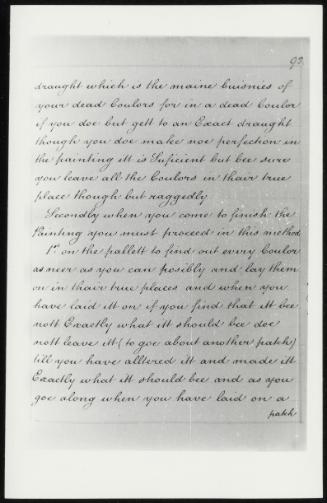 93.
draught which is the maine buisnies of
your dead Coulors for in a dead Coulor
if you doe but gett to an Exact draught
though you doe make noe perfection in
the painting itt is Suficient but bee sure
you leave all the Coulors in thair true
place though but raggedly
Secondly when you come to finish the
Painting you must proceed in this method
1st on the pallett to find out every Coulor
as neer as you can posibly and lay them
on in thair true places and when you
have laid itt on if you find that itt bee
nott Exactly what itt should bee doe
nott leave itt (to goe about another patch)
till you have alltred itt and made itt
Exactly what itt should bee and as you
goe along when you have laid on a
patch